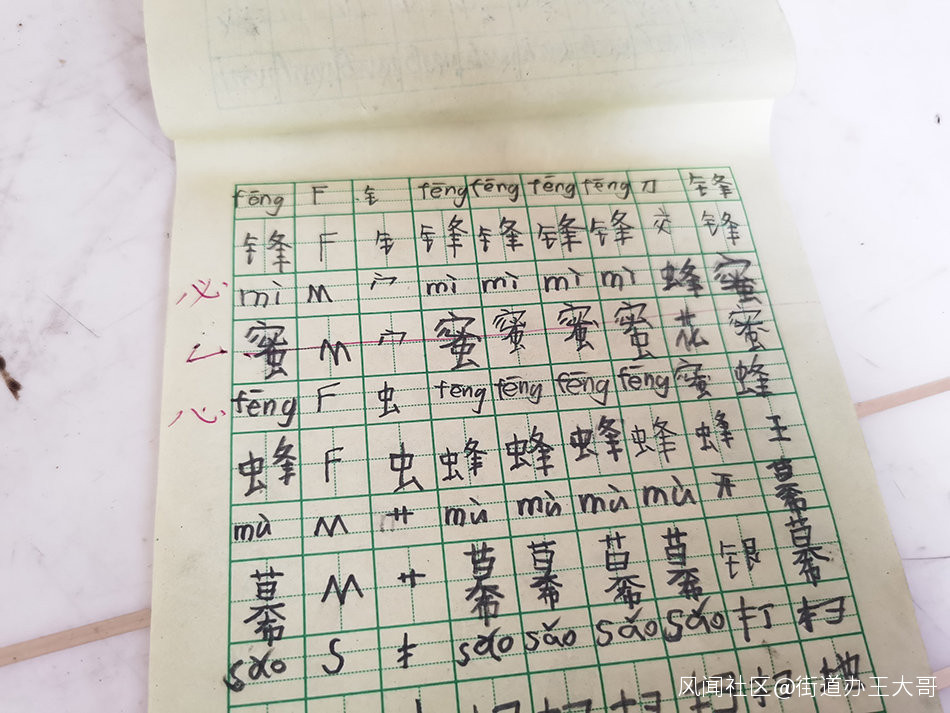 fēng F 钅 fēng fēng fēng fēng 刀 锋
锋 F 钅 锋 锋 锋 锋 交 锋
必 mì M 宀 mì mì mì mì 蜂 蜜
蜜 M 宀 蜜 蜜 蜜 蜜 花 蜜
心 fēng F 虫 fēng fēng fēng fēng 蜜 蜂
蜂 F 虫 蜂 蜂 蜂 蜂 蜂 王
mù M 艹 mù mù mù mù 开 幕
幕 M 艹 幕 幕 幕 幕 银 幕
sǎo S 扌 sǎo sǎo sǎo sǎo 打 扫
扫 地
风闻社区@街道办王大哥